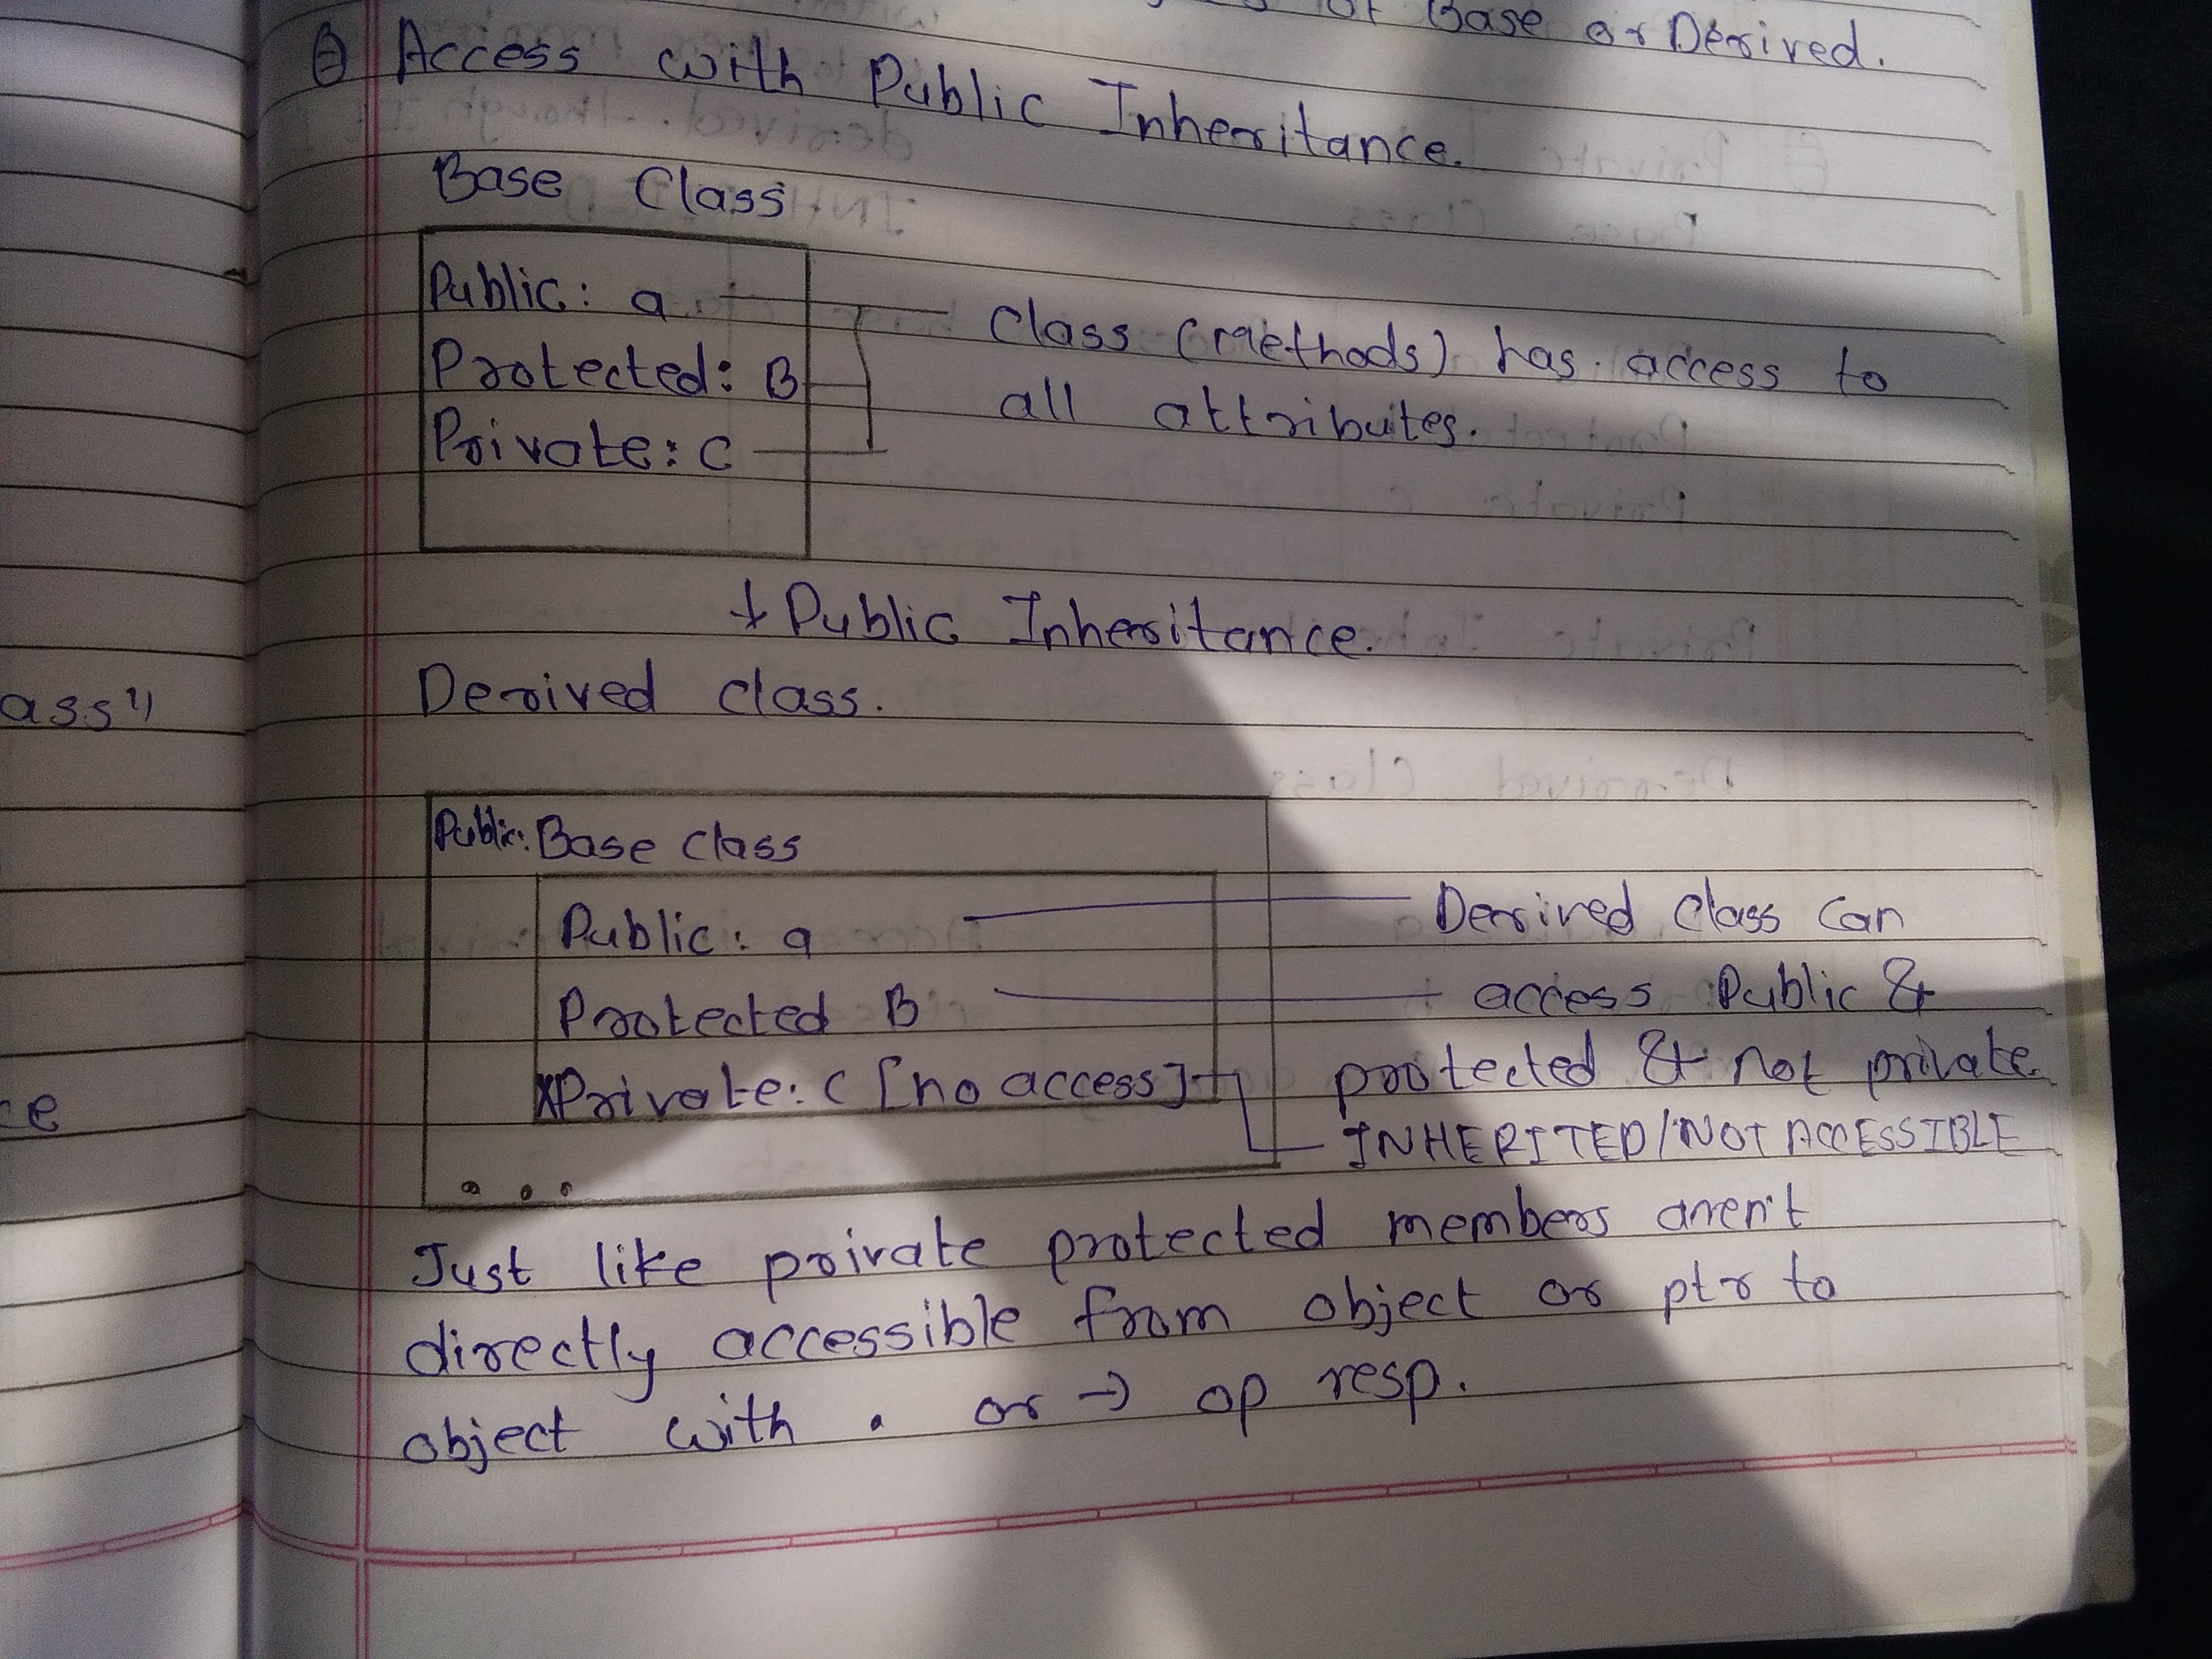 of Base or Derived.
Access with Public Inheritance.
Base Class
Public: a
Protected: B
Private: C
Class (Methods) has access to
all attributes.
↓ Public Inheritance.
Derived class.
Public: Base class
Public: a
Protected B
XPrivate: C [no access]
Derived Class Can
access Public &
protected & not private.
INHERITED/NOT ACCESSIBLE
...
Just like private protected members aren't
directly accessible from object or ptr to
object with . or → op resp.
ass"
ce